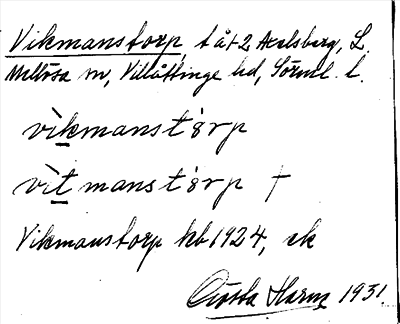 Vikmanstorp, t åt 2 Axelsberg, L.
Mellösa sn, Villåttinge hd, Sörml. l.
vìkmanstòrp
vìtmanstòrp †
Vikmanstorp kb 1924, ek
Gösta Harm 1931.